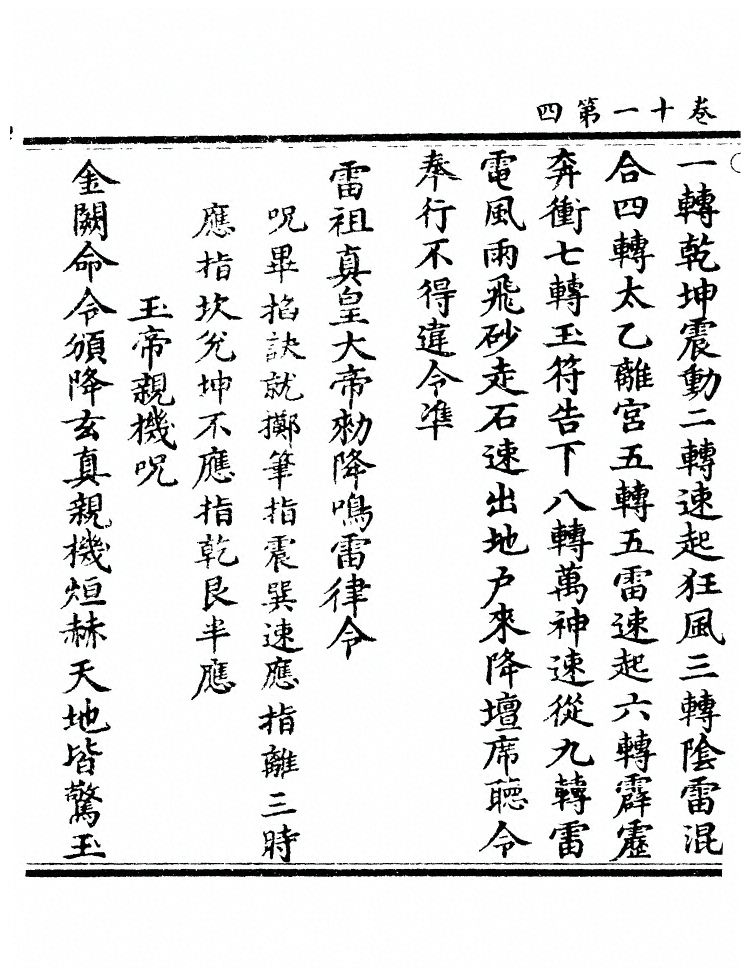 卷十一第四
一轉乾坤震動二轉速起狂風三轉陰雷混
合四轉太乙離宮五轉五雷速起六轉霹靂
奔衝七轉玉符告下八轉萬神速從九轉雷
電風雨飛砂走石速出地户來降壇席聽令
奉行不得違令准
雷祖真皇大帝勑降鳴雷律令
呪畢掐訣就擲筆指震巽速應指離三時
應指坎兊坤不應指乾艮半應
玉帝親機呪
金闕命令頒降玄真親機烜赫天地皆驚玉